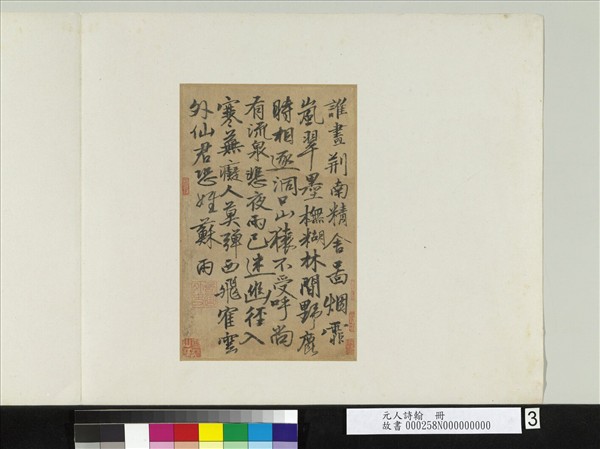 誰畫荊南精舍啚烟霏
嵐翠墨橅糊林間野鹿
時相逐洞口山猿不受呼尚
有流泉悲夜雨已迷幽徑入
寒蕪癡人莫彈西飛隺雲
外仙君恐姓蘇 雨
元人詩翰 冊
故書 000258N000000000
3